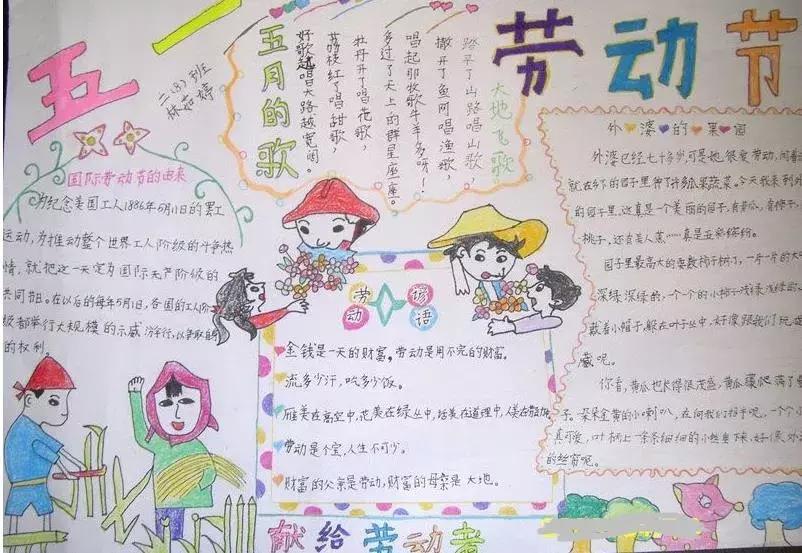 五一
劳动节
二(8)班
林茹婷
国际劳动节的由来
为纪念美国工人1886年5月1日的罢工
运动,为推动整个世界工人阶级的斗争热
情,就把这一天定为国际无产阶级的
共同节日。在以后的每年5月1日,各国的工人阶
级都举行大规模的示威游行,以争取自
的权利。
五月的歌
大地飞歌
踏平了山路唱山歌
撒开了鱼网唱渔歌,
唱起那牧歌牛羊多呀!
多过了天上的群星座座。
牡丹开了唱花歌,
荔枝红了唱甜歌,
好歌越唱大路越宽阔。
外婆的果园
外婆已经七十多岁,可是她很爱劳动,闲着
就在乡下的园子里种了许多瓜果蔬菜。今天我来到外
的园子里,这真是一个美丽的园子,有黄瓜,有柿子,
桃子,还有美人蕉……真是五彩缤纷。
园子里最高大的要数柿子树了,一片一片的大
深绿深绿的,一个个的小柿子浅绿浅绿的,
戴着小帽子,躲在叶子丛中,好像跟我们玩
藏呢。
你看,黄瓜也长得很茂盛,黄瓜藤爬满了
子。朵朵金黄的小喇叭,在向我们招手呢,一个个
真可爱,叶柄上一条条细细的小丝垂下来,好像外
的丝窗呢。
劳动谚语
金钱是一天的财富。劳动是用不完的财富。
流多少汗,吃多少饭。
雁美在高空中,花美在绿丛中,话美在道理中,人美在
劳动是个宝,人生不可少。
财富的父亲是劳动,财富的母亲是大地。
献给劳动者